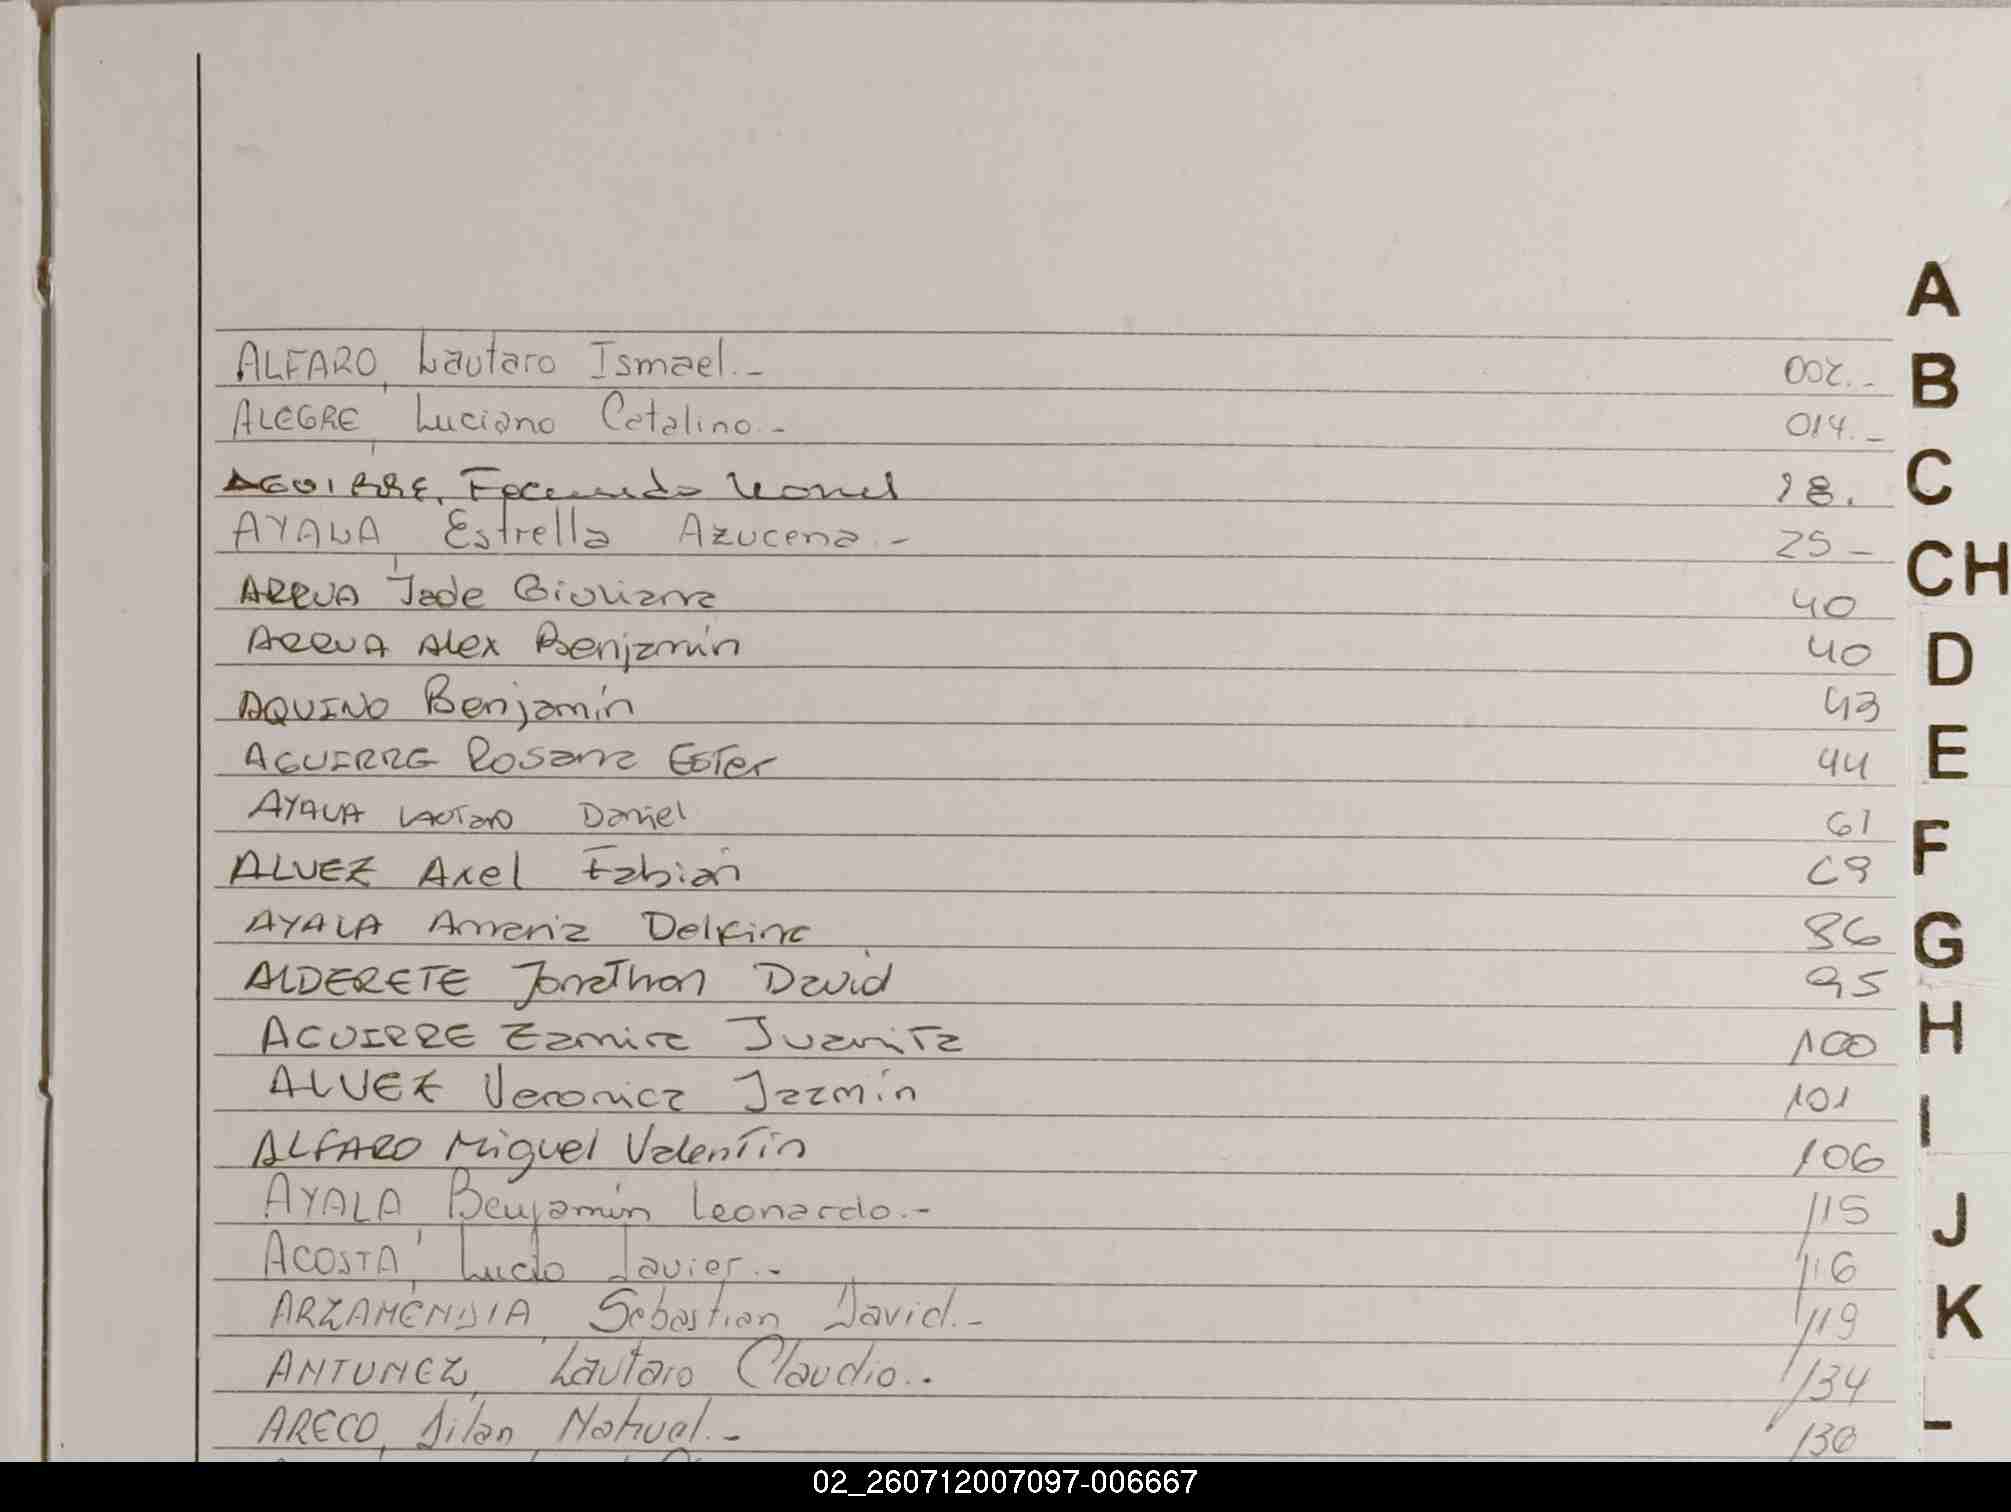 ALFARO, Lautaro Ismael.- 002.-
ALEGRE, Luciano Catalino.- 014.-
AGUIRRE, Facundo Leonel 18.
AYALA, Estrella Azucena.- 25-
ARRUA Jade Giuliana 40
ARRUA Alex Benjamín 40
AQUINO Benjamín 43
AGUIRRE Rosana Ester 44
AYALA Lautaro Daniel 61
ALVEZ Axel Fabián 69
AYALA Amania Delfina 86
ALDERETE Jonathan David 95
AGUIRRE Zamira Juanita 100
ALVEZ Veronica Jazmín 101
ALFARO Miguel Valentín 106
AYALA, Benjamín Leonardo.- 115
ACOSTA, Lucio Javier.- 116
ARZAMENDIA, Sebastian David.- 119
ANTUNEZ, Lautaro Claudio.- 134
ARECO, Dilan Nahuel.-
A
B
C
CH
D
E
F
G
H
I
J
K
02_260712007097-006667